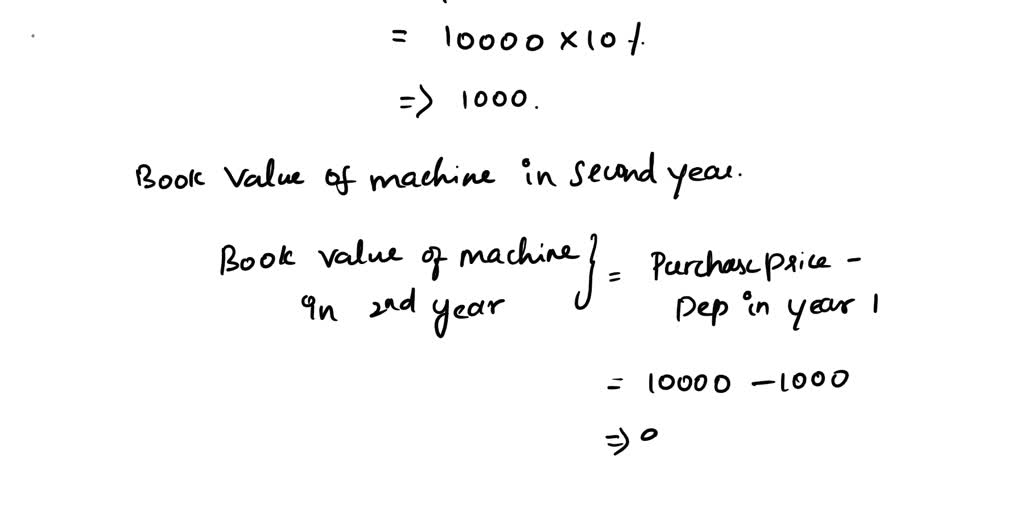 = 10000 × 10 %
=> 1000.
Book Value of machine in second year.
Book value of machine } = Purchase price -
in 2nd year Dep in year 1
= 10000 - 1000
=> 0